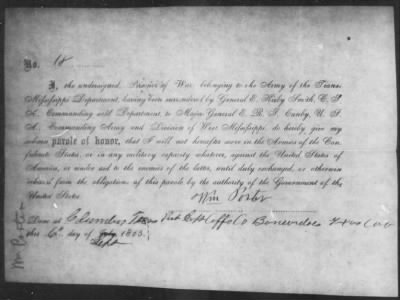 No. 18
I, the undersigned, Prisoner of War, belonging to the Army of the Trans-
Mississippi Department, having been surrendered by General E. Kirby Smith, C. S.
A., Commanding said Department, to Major General E. R. S. Canby, U. S.
A., Commanding Army and Division of West Mississippi, do hereby give my
solemn parole of honor, that I will not hereafter serve in the Armies of the Con-
federate States, or in any military capacity whatever, against the United States of
America, or render aid to the enemies of the latter, until duly exchanged, or otherwise
released from the obligations of this parole by the authority of the Government of the
United States.
Wm Porter
Done at Columbus Texas Co
this 6th day of July 1865.
Sept
Wm Porter